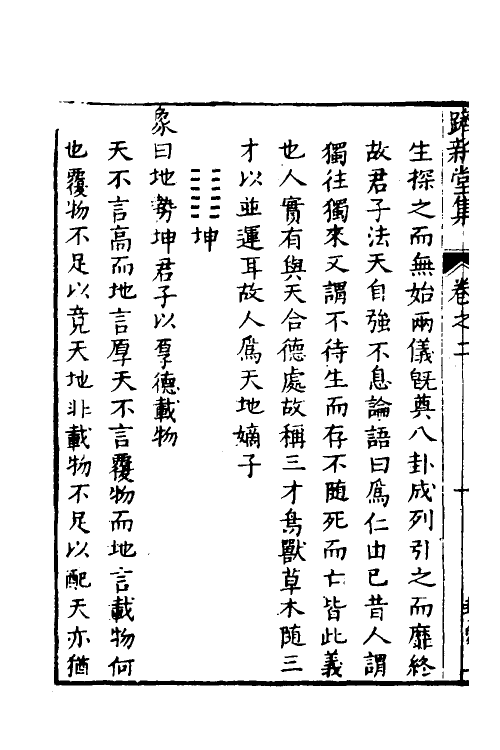 躋新堂集
卷之二
十
生探之而無始兩儀旣奠八卦成列引之而靡終
故君子法天自強不息論語曰爲仁由己昔人謂
獨往獨來又謂不待生而存不隨死而亡皆此義
也人實有與天合德處故稱三才鳥獸草木隨三
才以並運耳故人爲天地嫡子
坤
象曰地勢坤君子以厚德載物
天不言高而地言厚天不言覆物而地言載物何
也覆物不足以竟天地非載物不足以配天亦猶